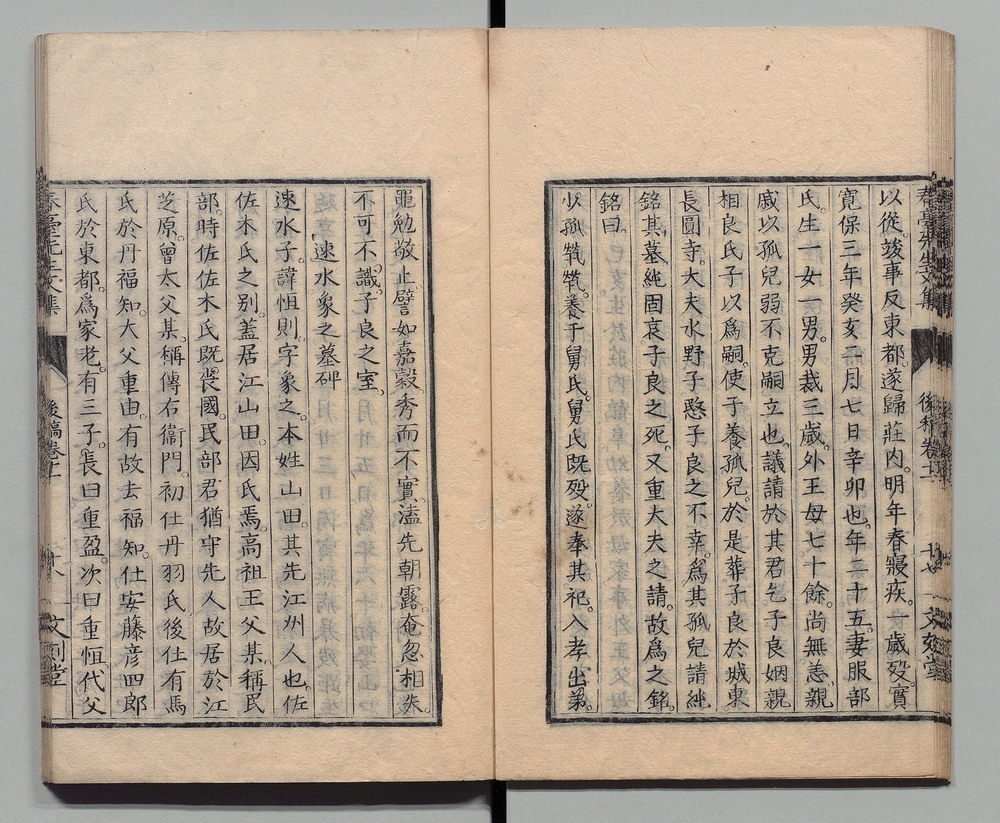 以從。竣事反東都。遂歸莊内。明年春寢疾。一歲歿。實
寬保三年癸亥二月七日辛卯也。年三十五。妻服部
氏。生一女一男。男裁三歲。外王母七十餘。尚無恙。親
戚以孤兒弱不克嗣立也。議請於其君乞子良姻親
相良氏子以爲嗣。使子養孤兒。於是葬子良於城東
長圓寺。大夫水野子愍子良之不幸。爲其孤兒請純
銘其墓。純固哀子良之死。又重大夫之請。故爲之銘。
銘曰。
少孤煢煢。養于舅氏。舅氏既歿。遂奉其祀。入孝出弟。
黽勉敬止。譬如嘉穀秀而不實。溘先朝露。奄忽相失。
不可不識。子良之室。
速水象之墓碑
速水子。諱恒則。字象之。本姓山田。其先江州人也。佐
佐木氏之別。蓋居江山田。因氏焉。高祖王父某。稱民
部。時佐佐木氏既喪國。民部君猶守先人故居於江
芝原。曾大父某。稱傳右衞門。初仕丹羽氏。後仕有馬
氏於丹福知。大父重由。有故去福知。仕安藤彦四郎
氏於東都。爲家老。有三子。長曰重盈。次曰重恒。代父
春臺先生文集
後稿卷十一